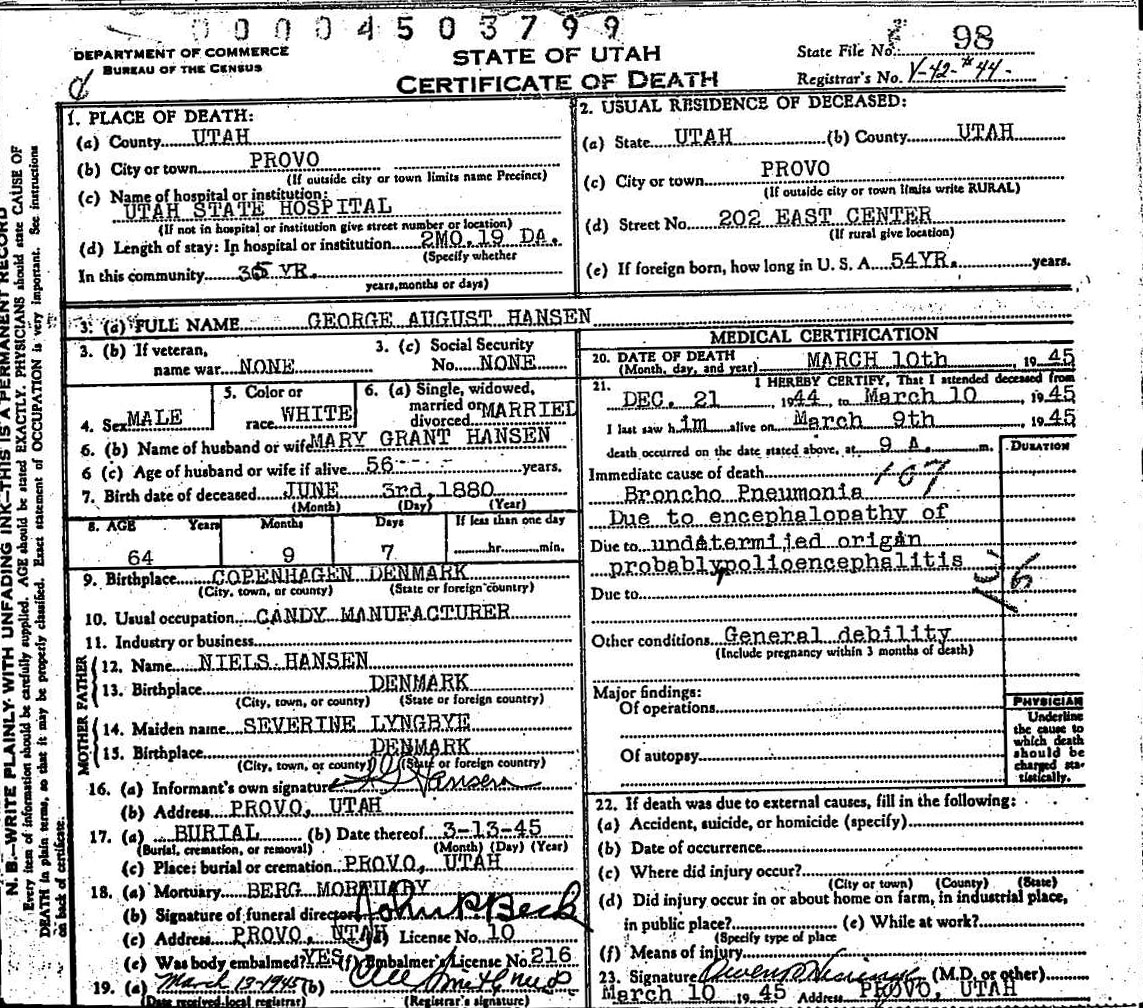 0 0 0 4 5 0 3 7 9 9
DEPARTMENT OF COMMERCE
BUREAU OF THE CENSUS
STATE OF UTAH
CERTIFICATE OF DEATH
State File No. 98
Registrar's No. Y-42-#44-
N. B.—WRITE PLAINLY WITH UNFADING INK—THIS IS A PERMANENT RECORD
Every item of information should be carefully supplied. AGE should be stated EXACTLY. PHYSICIANS should state CAUSE OF
DEATH in plain terms, so that it may be properly classified. Exact statement of OCCUPATION is very important. See instructions
on back of certificate.
1. PLACE OF DEATH:
(a) County UTAH
(b) City or town PROVO
(If outside city or town limits name Precinct)
(c) Name of hospital or institution:
UTAH STATE HOSPITAL
(If not in hospital or institution give street number or location)
(d) Length of stay: In hospital or institution 2MO. 19 DA.
(Specify whether
In this community 35 YR.
years, months or days)
2. USUAL RESIDENCE OF DECEASED:
(a) State UTAH (b) County UTAH
(c) City or town PROVO
(If outside city or town limits write RURAL)
(d) Street No. 202 EAST CENTER
(If rural give location)
(e) If foreign born, how long in U. S. A 54YR. years.
3. (a) FULL NAME GEORGE AUGUST HANSEN
3. (b) If veteran,
name war NONE
3. (c) Social Security
No. NONE
4. Sex MALE
5. Color or
race WHITE
6. (a) Single, widowed,
married or
divorced MARRIED
6. (b) Name of husband or wife MARY GRANT HANSEN
6 (c) Age of husband or wife if alive 56 years.
7. Birth date of deceased JUNE 3rd, 1880
(Month) (Day) (Year)
8. AGE Years Months Days If less than one day
64 9 7 hr. min.
9. Birthplace COPENHAGEN DENMARK
(City, town, or county) (State or foreign country)
10. Usual occupation CANDY MANUFACTURER
11. Industry or business
FATHER
12. Name NIELS HANSEN
13. Birthplace DENMARK
(City, town, or county) (State or foreign country)
MOTHER
14. Maiden name SEVERINE LYNGBYE
15. Birthplace DENMARK
(City, town, or county) (State or foreign country)
16. (a) Informant's own signature Hansen
(b) Address PROVO, UTAH
17. (a) BURIAL (b) Date thereof 3-13-45
(Burial, cremation, or removal) (Month) (Day) (Year)
(c) Place: burial or cremation PROVO, UTAH
18. (a) Mortuary BERG MORTUARY
(b) Signature of funeral director John P. Beck
(c) Address PROVO, UTAH (d) License No. 10
(e) Was body embalmed? YES (f) Embalmer's License No. 216
19. (a) March 13-1945 (b)
(Date received local registrar) (Registrar's signature)
MEDICAL CERTIFICATION
20. DATE OF DEATH MARCH 10th 19 45
(Month, day, and year)
21. I HEREBY CERTIFY, That I attended deceased from
DEC. 21, 1944, to March 10, 1945
I last saw him alive on March 9th, 1945
death occurred on the date stated above, at 9 A. m.
DURATION
Immediate cause of death 107
Broncho Pneumonia
Due to encephalopathy of
Due to undetermijed origin
probably polioencephalitis
Due to
Other conditions General debility
(Include pregnancy within 3 months of death)
Major findings:
Of operations
Of autopsy
PHYSICIAN
Underline
the cause to
which death
should be
charged sta-
tistically.
22. If death was due to external causes, fill in the following:
(a) Accident, suicide, or homicide (specify)
(b) Date of occurrence
(c) Where did injury occur?
(City or town) (County) (State)
(d) Did injury occur in or about home on farm, in industrial place,
in public place? (e) While at work?
(Specify type of place
(f) Means of injury
23. Signature (M.D. or other)
March 10 19 45 Address PROVO, UTAH